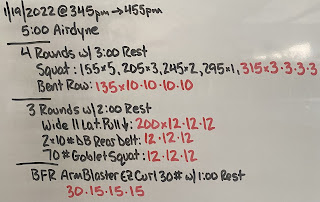 1/19/2022 @ 345pm → 455pm
5:00 Airdyne
4 Rounds w/ 3:00 Rest
Squat: 155x5, 205x3, 245x2, 295x1, 315x3·3·3·3
Bent Row: 135x10·10·10·10
3 Rounds w/ 2:00 Rest
Wide || Lat. Pull↓: 200x12·12·12
2x10# DB Rear Delt: 12·12·12
70# Goblet Squat: 12·12·12
BFR ArmBlaster EZ Curl 30# w/ 1:00 Rest
30·15·15·15